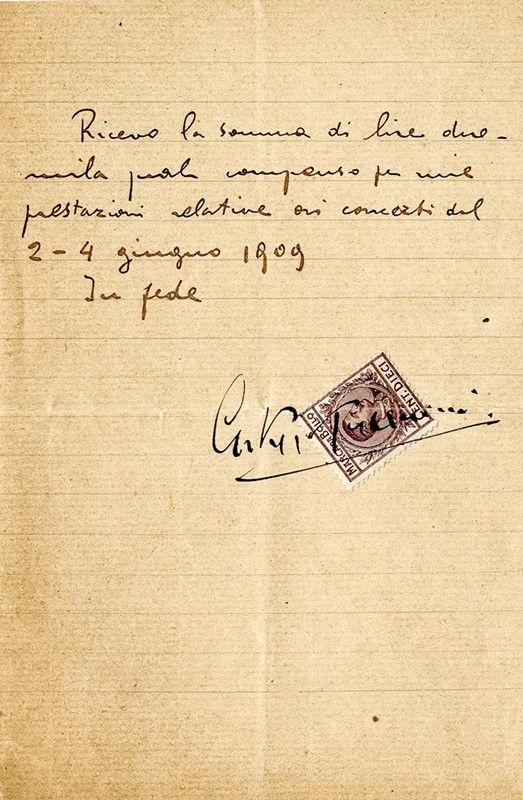 Ricevo la somma di lire due-
mila quale compenso per mie
prestazioni relative ai concerti del
2-4 giugno 1909
In fede
MARCA DA BOLLO
CENT. DIECI